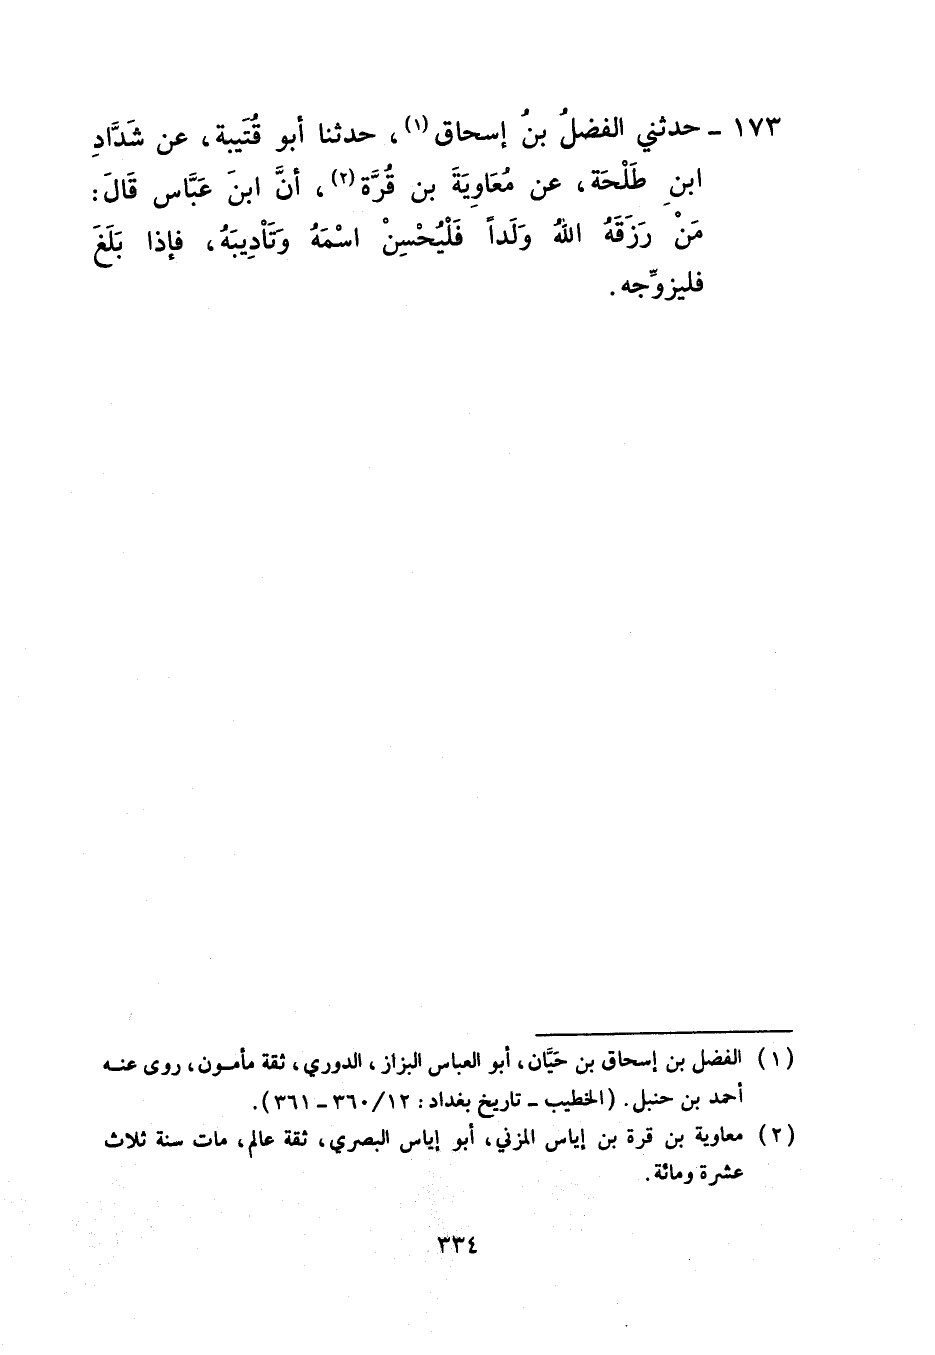 ١٧٣ ـ حدثني الفضلُ بنُ إسحاق(١)، حدثنا أبو قُتَيبة، عن شَدَّادِ
ابنِ طَلْحَة، عن مُعَاوِيَةَ بن قُرَّة(٢)، أنَّ ابنَ عَبَّاس قَالَ:
مَنْ رَزَقَهُ اللهُ وَلَداً فَلْيُحْسِنْ اسْمَهُ وَتَأْدِيبَهُ، فإذا بَلَغَ
فليزوِّجه.
(١) الفضل بن إسحاق بن حَيَّان، أبو العباس البزاز، الدوري، ثقة مأمـون، روى عنـه
أحمد بن حنبل. (الخطيب ـ تاريخ بغداد: ١٢/ ٣٦٠ ـ ٣٦١).
(٢) معاوية بن قرة بن إياس المزني، أبو إياس البصري، ثقة عالم، مات سنة ثلاث
عشرة ومائة.
٣٣٤